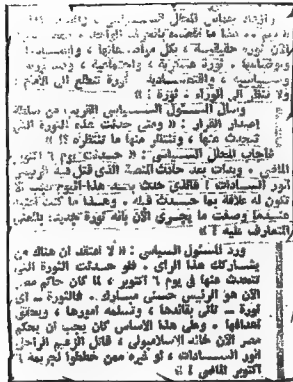 وزاد حماس المحلل السياسي ، والحمد
الآن ثورة حقيقية ، بكل مواصفاتها ، واتساعها
وتوصيفها . ثورة عسكرية ، واجتماعية ،
وسياسية ، واقتصادية . ثورة تتطلع الى الأمام :
ولا تنظر الى الوراء . ثورة :
وسأل المسئول السياسي القريب من سلطة
إصدار القرار : « ومتى حدثت هذه الثورة التى
تتحدث عنها ، وتنتظر منها ما تنتظره ؟! »
فأجاب المحلل السياسى : « حدثت يوم ٦ اكتوبر
الماضى . وبدات بعد حادث المنصة الذى قتل فيه الرئيس
أنور السادات ! فالذى حدث بعد هذا اليوم يجب
تكون له علاقة بما حدث قبله . وهذا ما كنت
عندما وصفت ما يجرى الآن بأنه ثورة جديدة بالمعنى
المتعارف عليه ! »
ورد المسئول السياسى : « لا أعتقد أن هناك من
يشاركك هذا الرأى . فلو حدثت الثورة التى
تتحدث عنها فى يوم ٦ أكتوبر ، لما كان حاكم مصر
الآن هو الرئيس حسنى مبارك . فالثورة - أى
ثورة - تأتى بقائدها ، وتسلمه أمورها ، ويحقق
أهدافها . وعلى هذا الأساس كان يجب أن يحكم
مصر الآن خالد الاسلامبولى ، قاتل الزعيم الراحل
أنور السادات ، أو غيره ممن خططوا لجريمة ٦
أكتوبر الماضى ! »